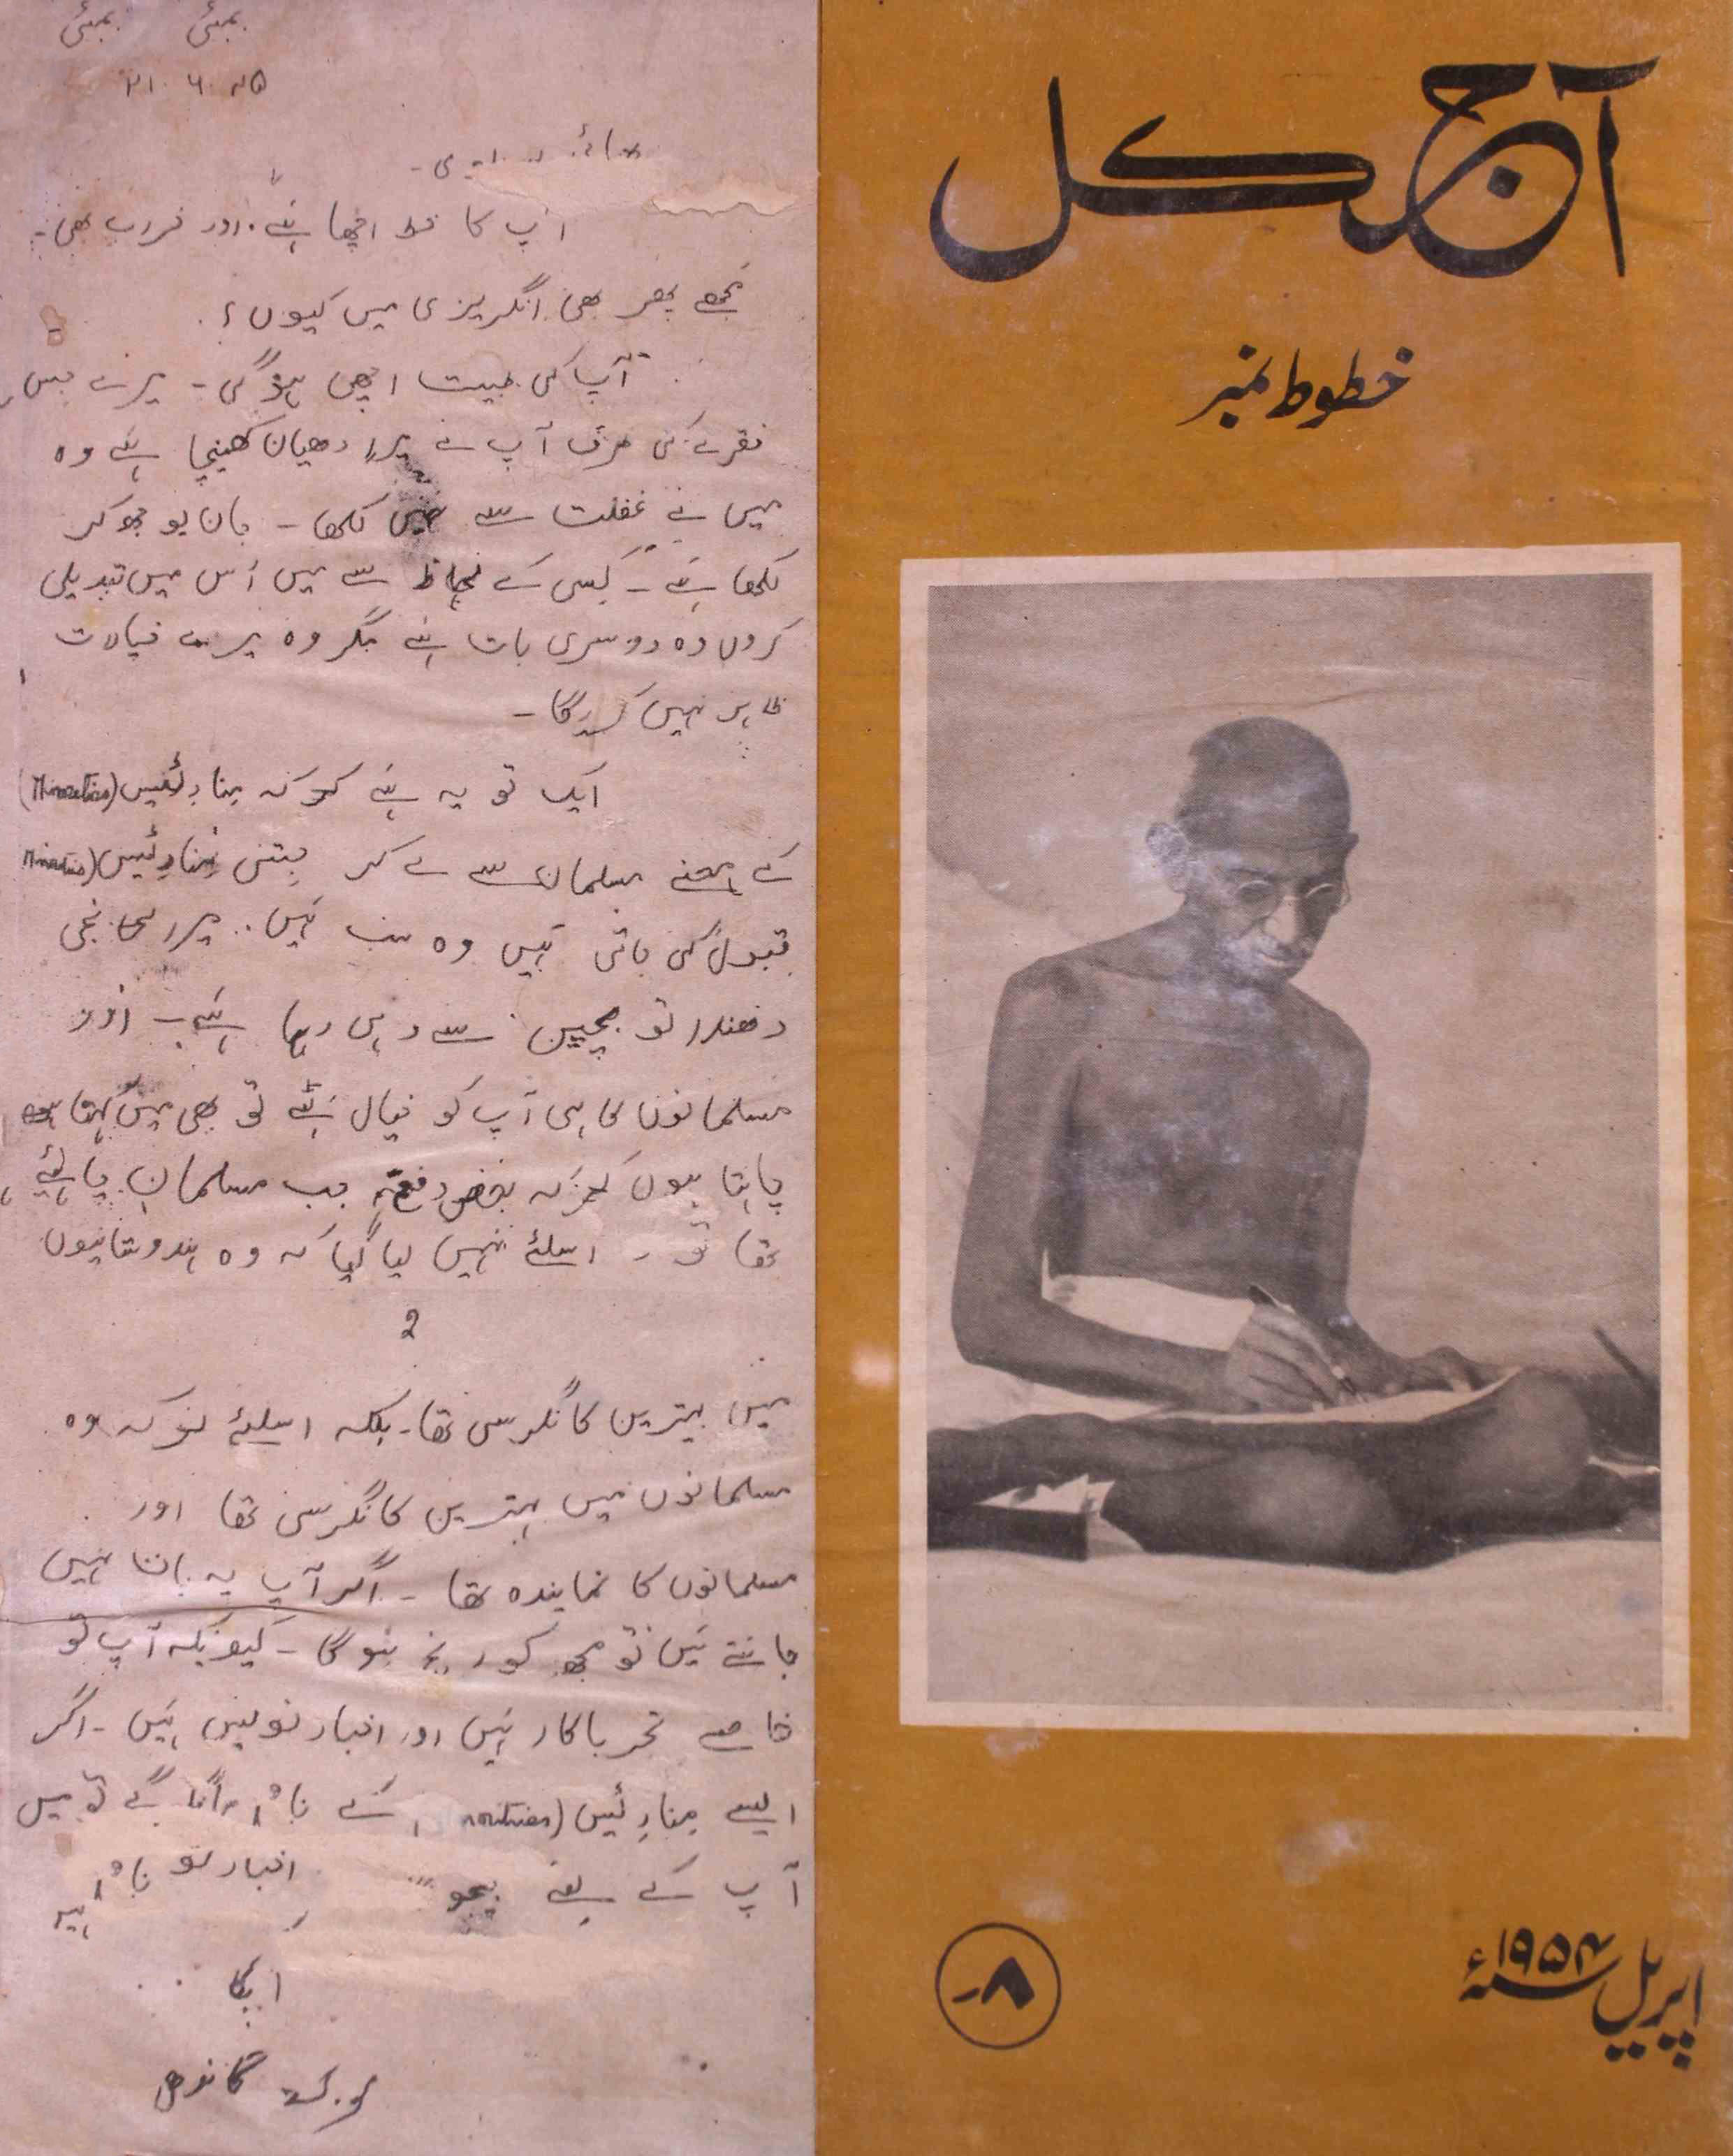 آج کل
خطوط نمبر
اپریل ۱۹۵۴ء
۸؍
بمبئی بمبئی
۲۱۔۶۔۴۵
آپ کا خط اچھا ہے۔ اور خراب بھی۔
مجھے پھر بھی انگریزی میں کیوں؟
آپ کی طبیت اچھی ہوگی۔ میرے جس
فقرے کی طرف آپ نے میرا دھیان کھینچا ہے وہ
میں نے غفلت سے نہیں لکھا۔ جان بوجھ کر
لکھا ہے۔ کسی کے لحاظ سے میں اس میں تبدیلی
کروں وہ دوسری بات ہے مگر وہ میرے خیالات
ظاہر نہیں کریگا۔
ایک تو یہ ہے کہ منارِٹیس (Minorities)
کے معنے مسلمان سے لے کر جتنی منارِٹیس (Minorities
قبول کی جاتی ہیں وہ سب ہیں۔ میرا
دھندا تو بچپن سے وہی رہا ہے۔ اور
مسلمانوں کا ہی آپ کو خیال ہے تو بھی میں کہنا
چاہتا ہوں کہ بعض دفعہ جب مسلمان چاہئے
تھا تو اسلئے نہیں لیا گیا کہ وہ ہندوستانیوں
2
میں بہترین کانگرسی تھا۔ بلکہ اسلئے کہ وہ
مسلمانوں میں بہترین کانگرسی تھا اور
مسلمانوں کا نمایندہ تھا۔ اگر آپ یہ بات نہیں
جانتے ہیں تو مجھ کو رنج ہوگا۔ کیونکہ آپ تو
خاصے تجرباکار ہیں اور اخبار نویس ہیں۔ اگر
ایسے منارِٹیس (norities کے نام مانگو گے تو میں
آپ کے لیے اخبار نام
آپکا
م۔ک۔ گاندھی